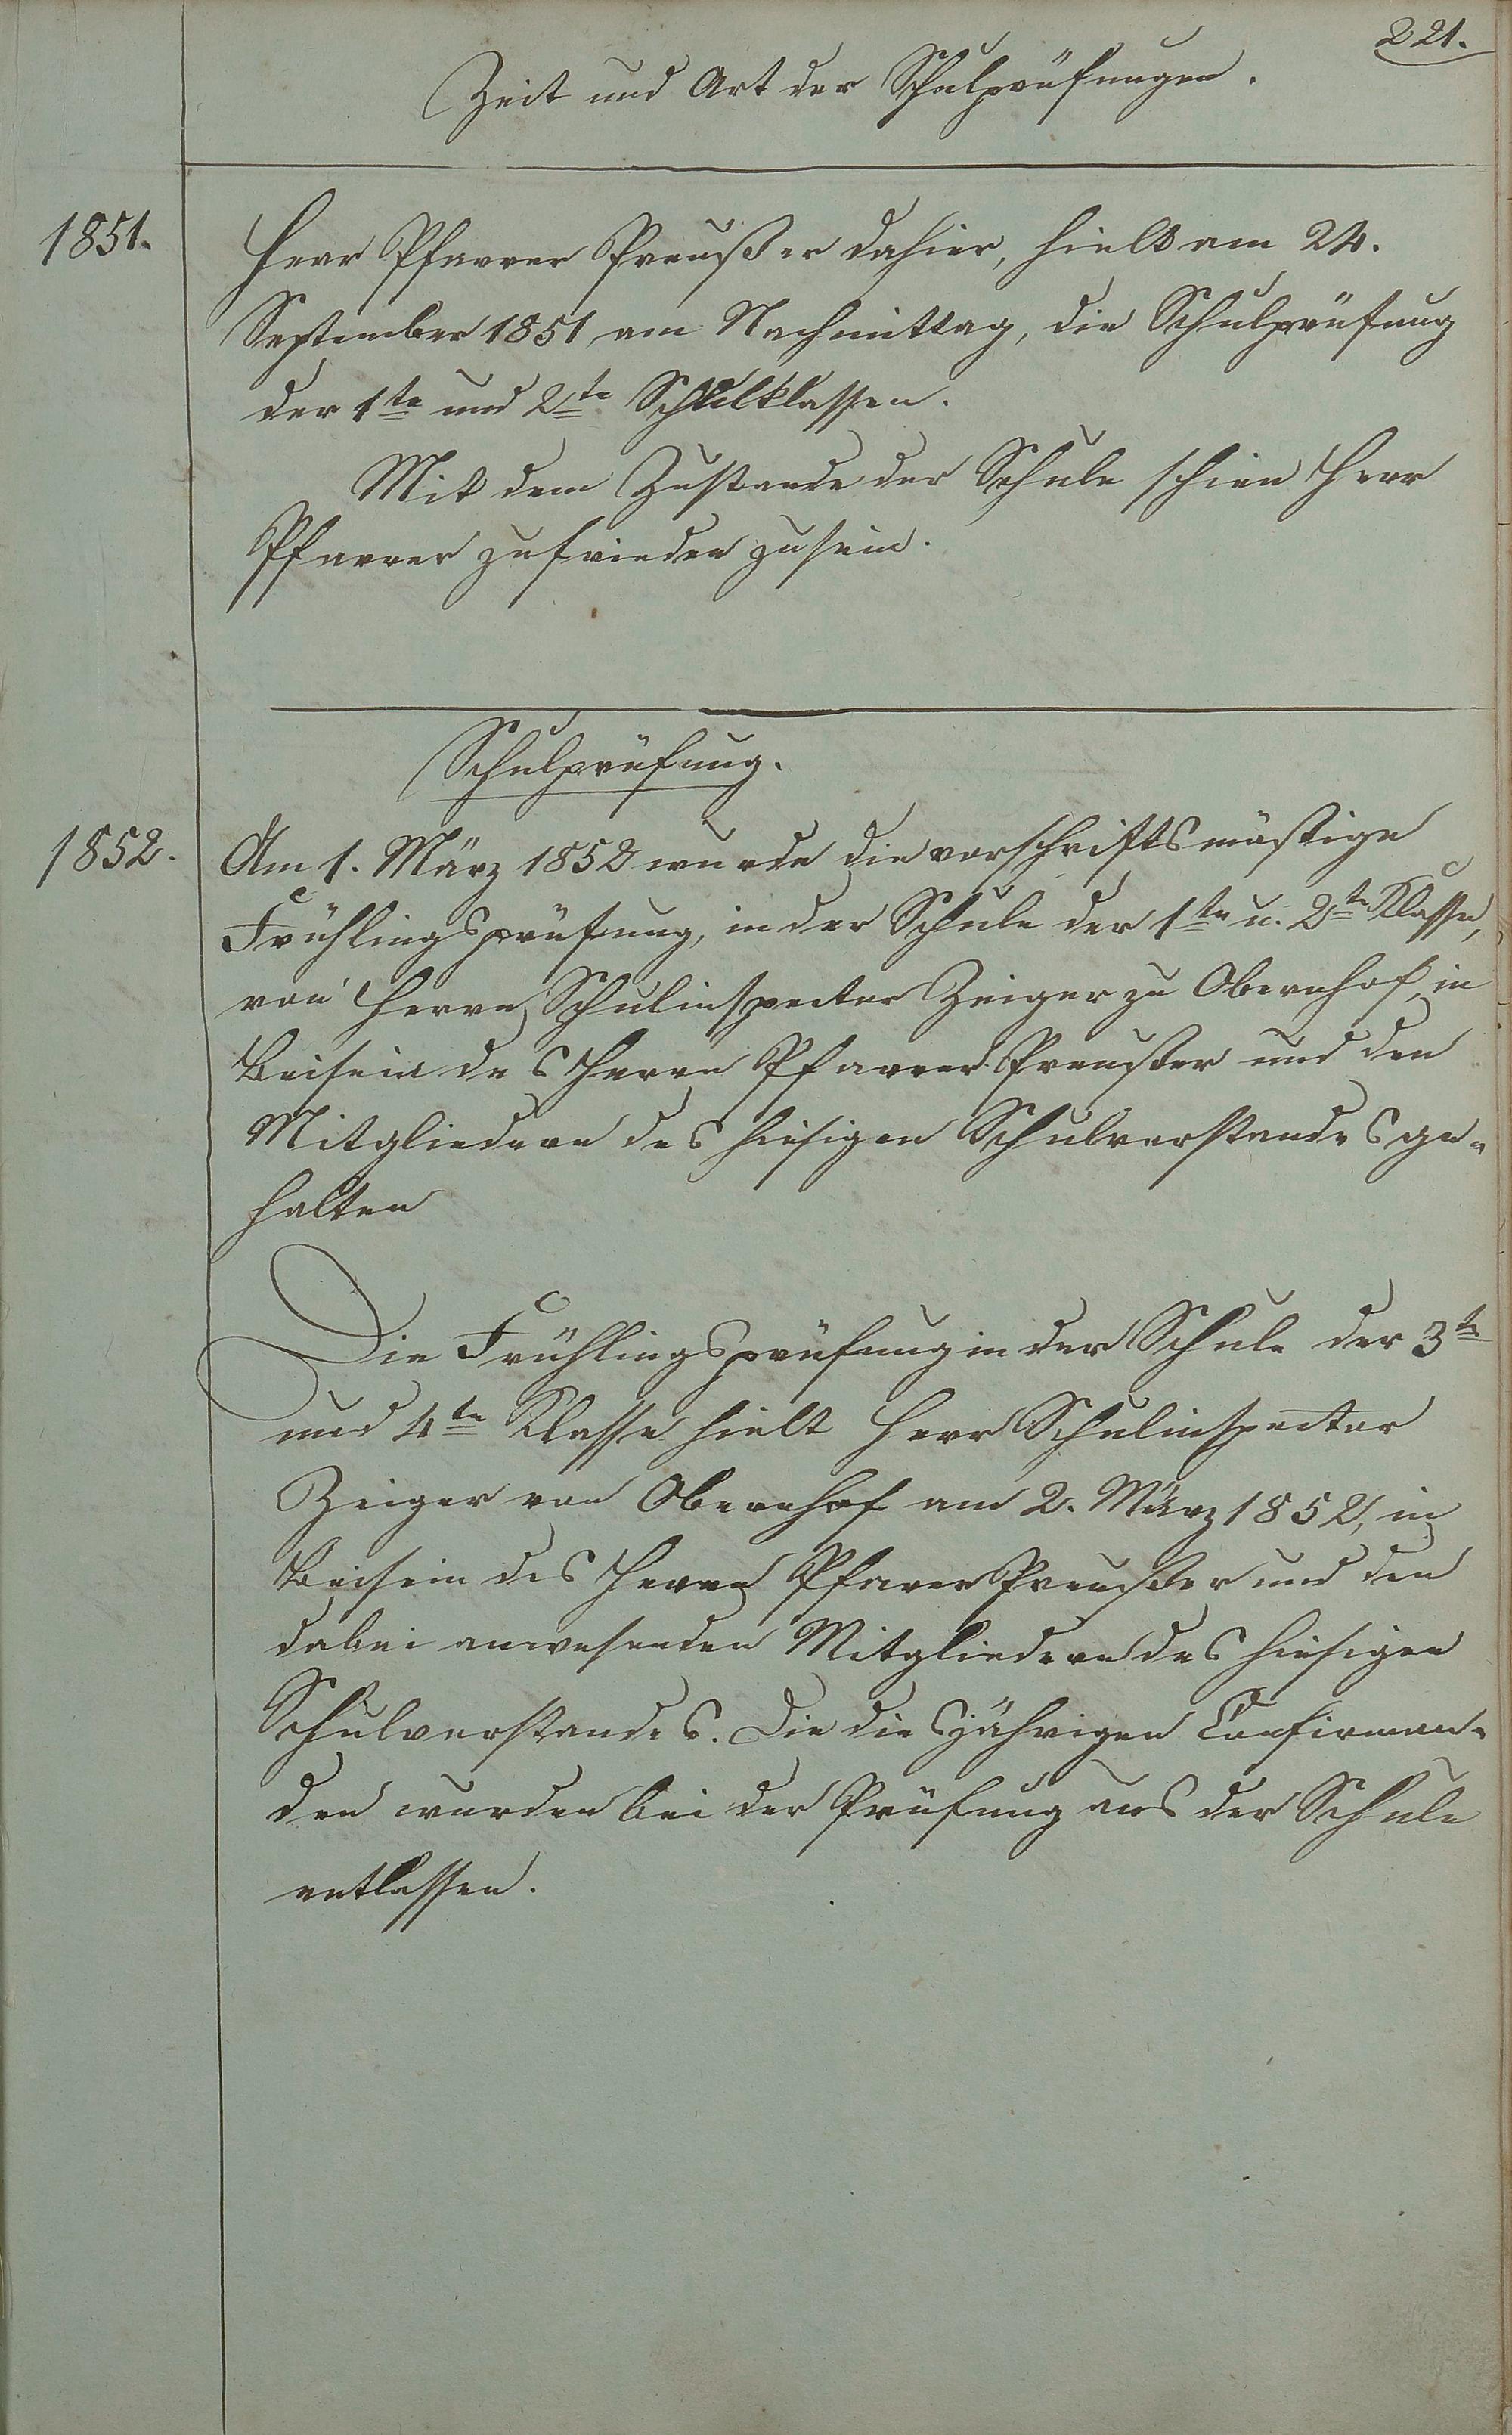 221.
Zeit und Art der Schulprüfungen.
1851.
Herr Pfarrer Preußer dahier, hielt am 24.
September 1851 am Nachmittag, die Schulprüfung
der 1te und 2te Schulklassen.
Mit dem Zustande der Schule schien Herr
Pfarrer zufrieden zu sein.
Schulprüfung.
1852.
Am 1. März 1852 wurde die vorschriftsmäßige
Frühlingsprüfung, in der Schule der 1te u. 2te Klasse,
von Herrn Schulinspector Zeiger zu Obernhof, in
Beisein des Herrn Pfarrer Preußer und den
Mitgliedern des hiesigen Schulvorstandes ge-
halten
Die Frühlingsprüfung in der Schule der 3te
und 4te Klasse hielt Herr Schulinspector
Zeiger von Obernhof am 2. März 1852, in
Beisein des Herrn Pfarrer Preußer und den
dabei anwesenden Mitgliedern des hiesigen
Schulvorstandes. Die diesjährigen Confirman-
den wurden bei der Prüfung aus der Schule
entlassen.